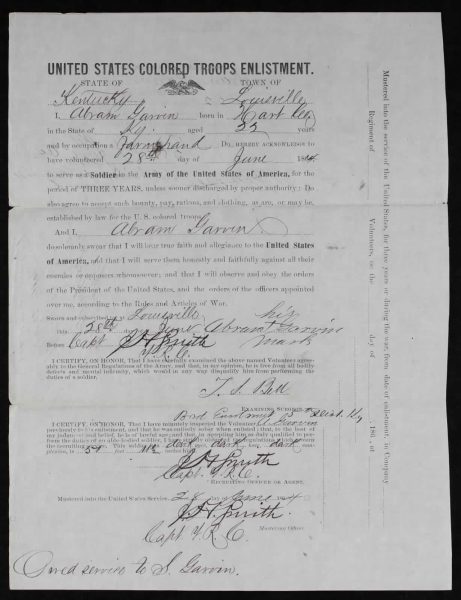 UNITED STATES COLORED TROOPS ENLISTMENT.
STATE OF TOWN OF
Kentucky Louisville
I, Abram Garvin born in Hart
in the State of Ky. aged 22 years
and by occupation a Farmhand Do, HEREBY ACKNOWLEDGE to
have volunteered 28th day of June 186
to serve as a Soldier in the Army of the United States of America, for the
period of THREE YEARS, unless sooner discharged by proper authority: Do
also agree to accept such bounty, pay, rations, and clothing, as are, or may be,
established by law for the U.S. colored troops.
And I, Abram Garvin
do solemnly swear that I will bear true faith and allegiance to the United States
of America, and that I will serve them honestly and faithfully against all their
enemies or opposers whomsoever; and that I will observe and obey the orders
of the President of the United States, and the orders of the officers appointed
over me, according to the Rules and Articles of War.
Sworn and subscribed to, at Louisville his
this 28th day June Abram Garvin
Before Capt J H Smith mark
V.R.C.
I CERTIFY, ON HONOR, That I have carefully examined the above named Volunteer agree-
ably to the General Regulations of the Army, and that, in my opinion, he is free from all bodily
defects and mental infirmity, which would in any way disqualify him from performing the
duties of a soldier.
T. S. Bell
EXAMINING SURGEON
I CERTIFY, ON HONOR, That I have minutely inspected the Volunteer A Garvin
previously to his enlistment, and that he was entirely sober when enlisted; that, to the best of
my judgment and belief, he is of lawful age; and that, in accepting him as duly qualified to per-
form the duties of an able-bodied soldier, I have strictly observed the Regulations which govern
the recruiting service. dark dark dark
J H Smith
Capt V.R.C.
RECRUITING OFFICER OR AGENT.
Mustered into the United States Service, 28 day of June
J H Smith
Capt V.R.C.
Mustering Officer.
Owed service to S. Garvin.
Mustered into the service of the United States, for three years or during the war, from date of enlistment, in Company
Regiment of Volunteers, on the day of 186 , at